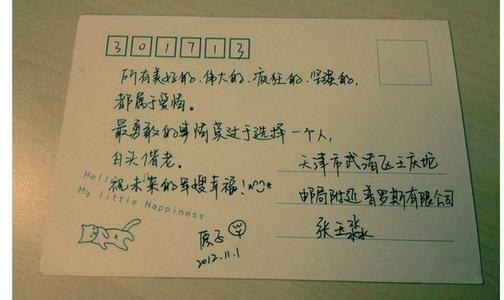 301713
所有美好的、伟大的、疯狂的、坚强的,
都属于爱情。
最勇敢的事情莫过于选择一个人,
白头偕老。
祝未来的军嫂幸福!
Hello
My little Happiness
2012.11.1
天津市武清区王庆坨
邮局附近普罗斯有限公司
张玉淼